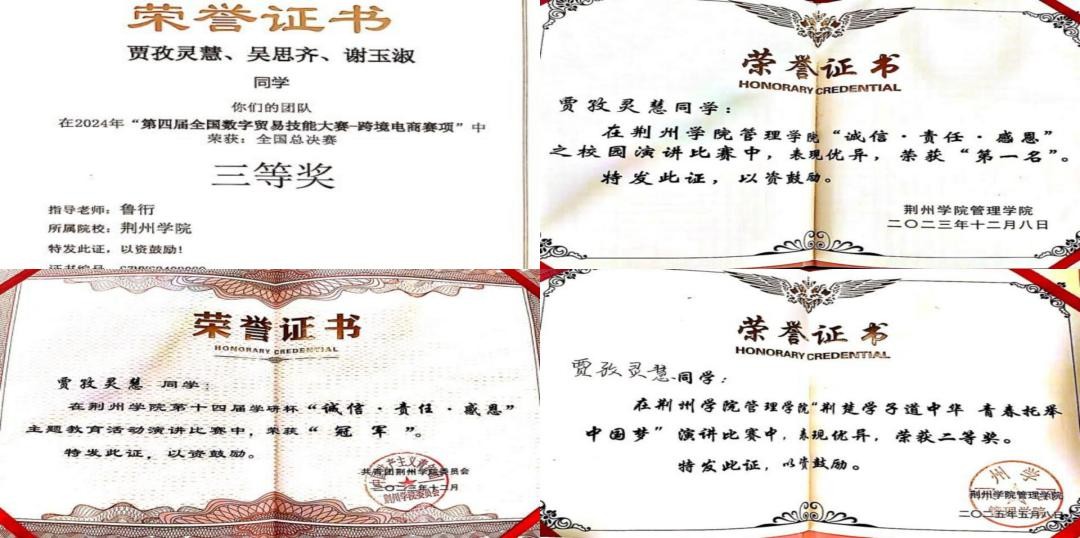 荣誉证书
贾孜灵慧、吴思齐、谢玉淑
同学
你们的团队
在2024年“第四届全国数字贸易技能大赛-跨境电商赛项”中
荣获：全国总决赛
三等奖
指导老师：鲁衍
所属院校：荆州学院
特发此证，以资鼓励!
荣誉证书
HONORARY CREDENTIAL
贾孜灵慧同学：
在荆州学院管理学院“诚信·责任·感恩”
之校园演讲比赛中，表现优异，荣获“第一名”。
特发此证，以资鼓励。
荆州学院管理学院
二〇二三年十二月八日
荣誉证书
HONORARY CREDENTIAL
贾孜灵慧 同学：
在荆州学院第十四届学研杯“诚信·责任·感恩”
主题教育活动演讲比赛中，荣获“冠军”。
特发此证，以资鼓励。
共青团荆州学院委员会
二〇二三年十二月
荣誉证书
HONORARY CREDENTIAL
贾孜灵慧同学：
在荆州学院管理学院“荆楚学子道中华 青春托举
中国梦”演讲比赛中，表现优异，荣获二等奖。
特发此证，以资鼓励。
荆州学院管理学院
二〇二五年五月八日